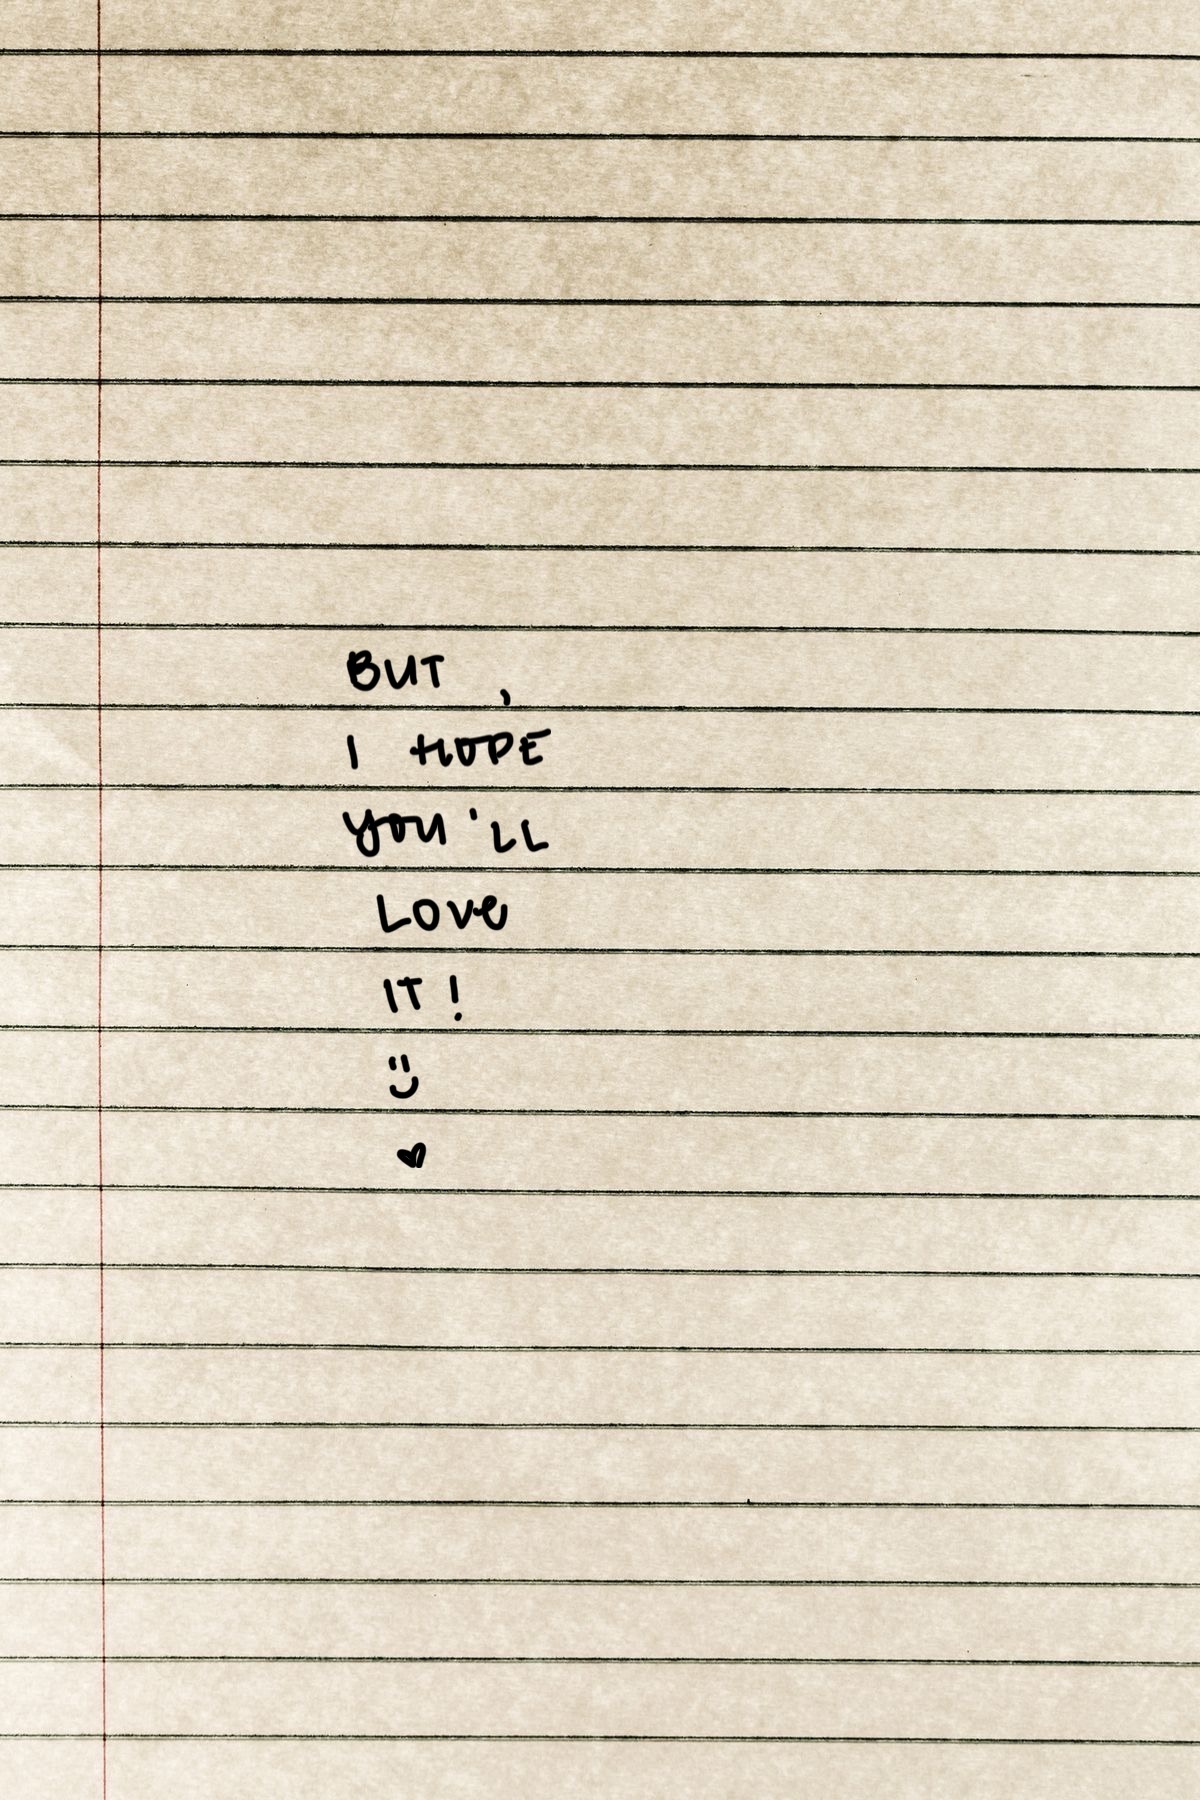 BUT ,
I HOPE
YOU'LL
LOVE
IT!